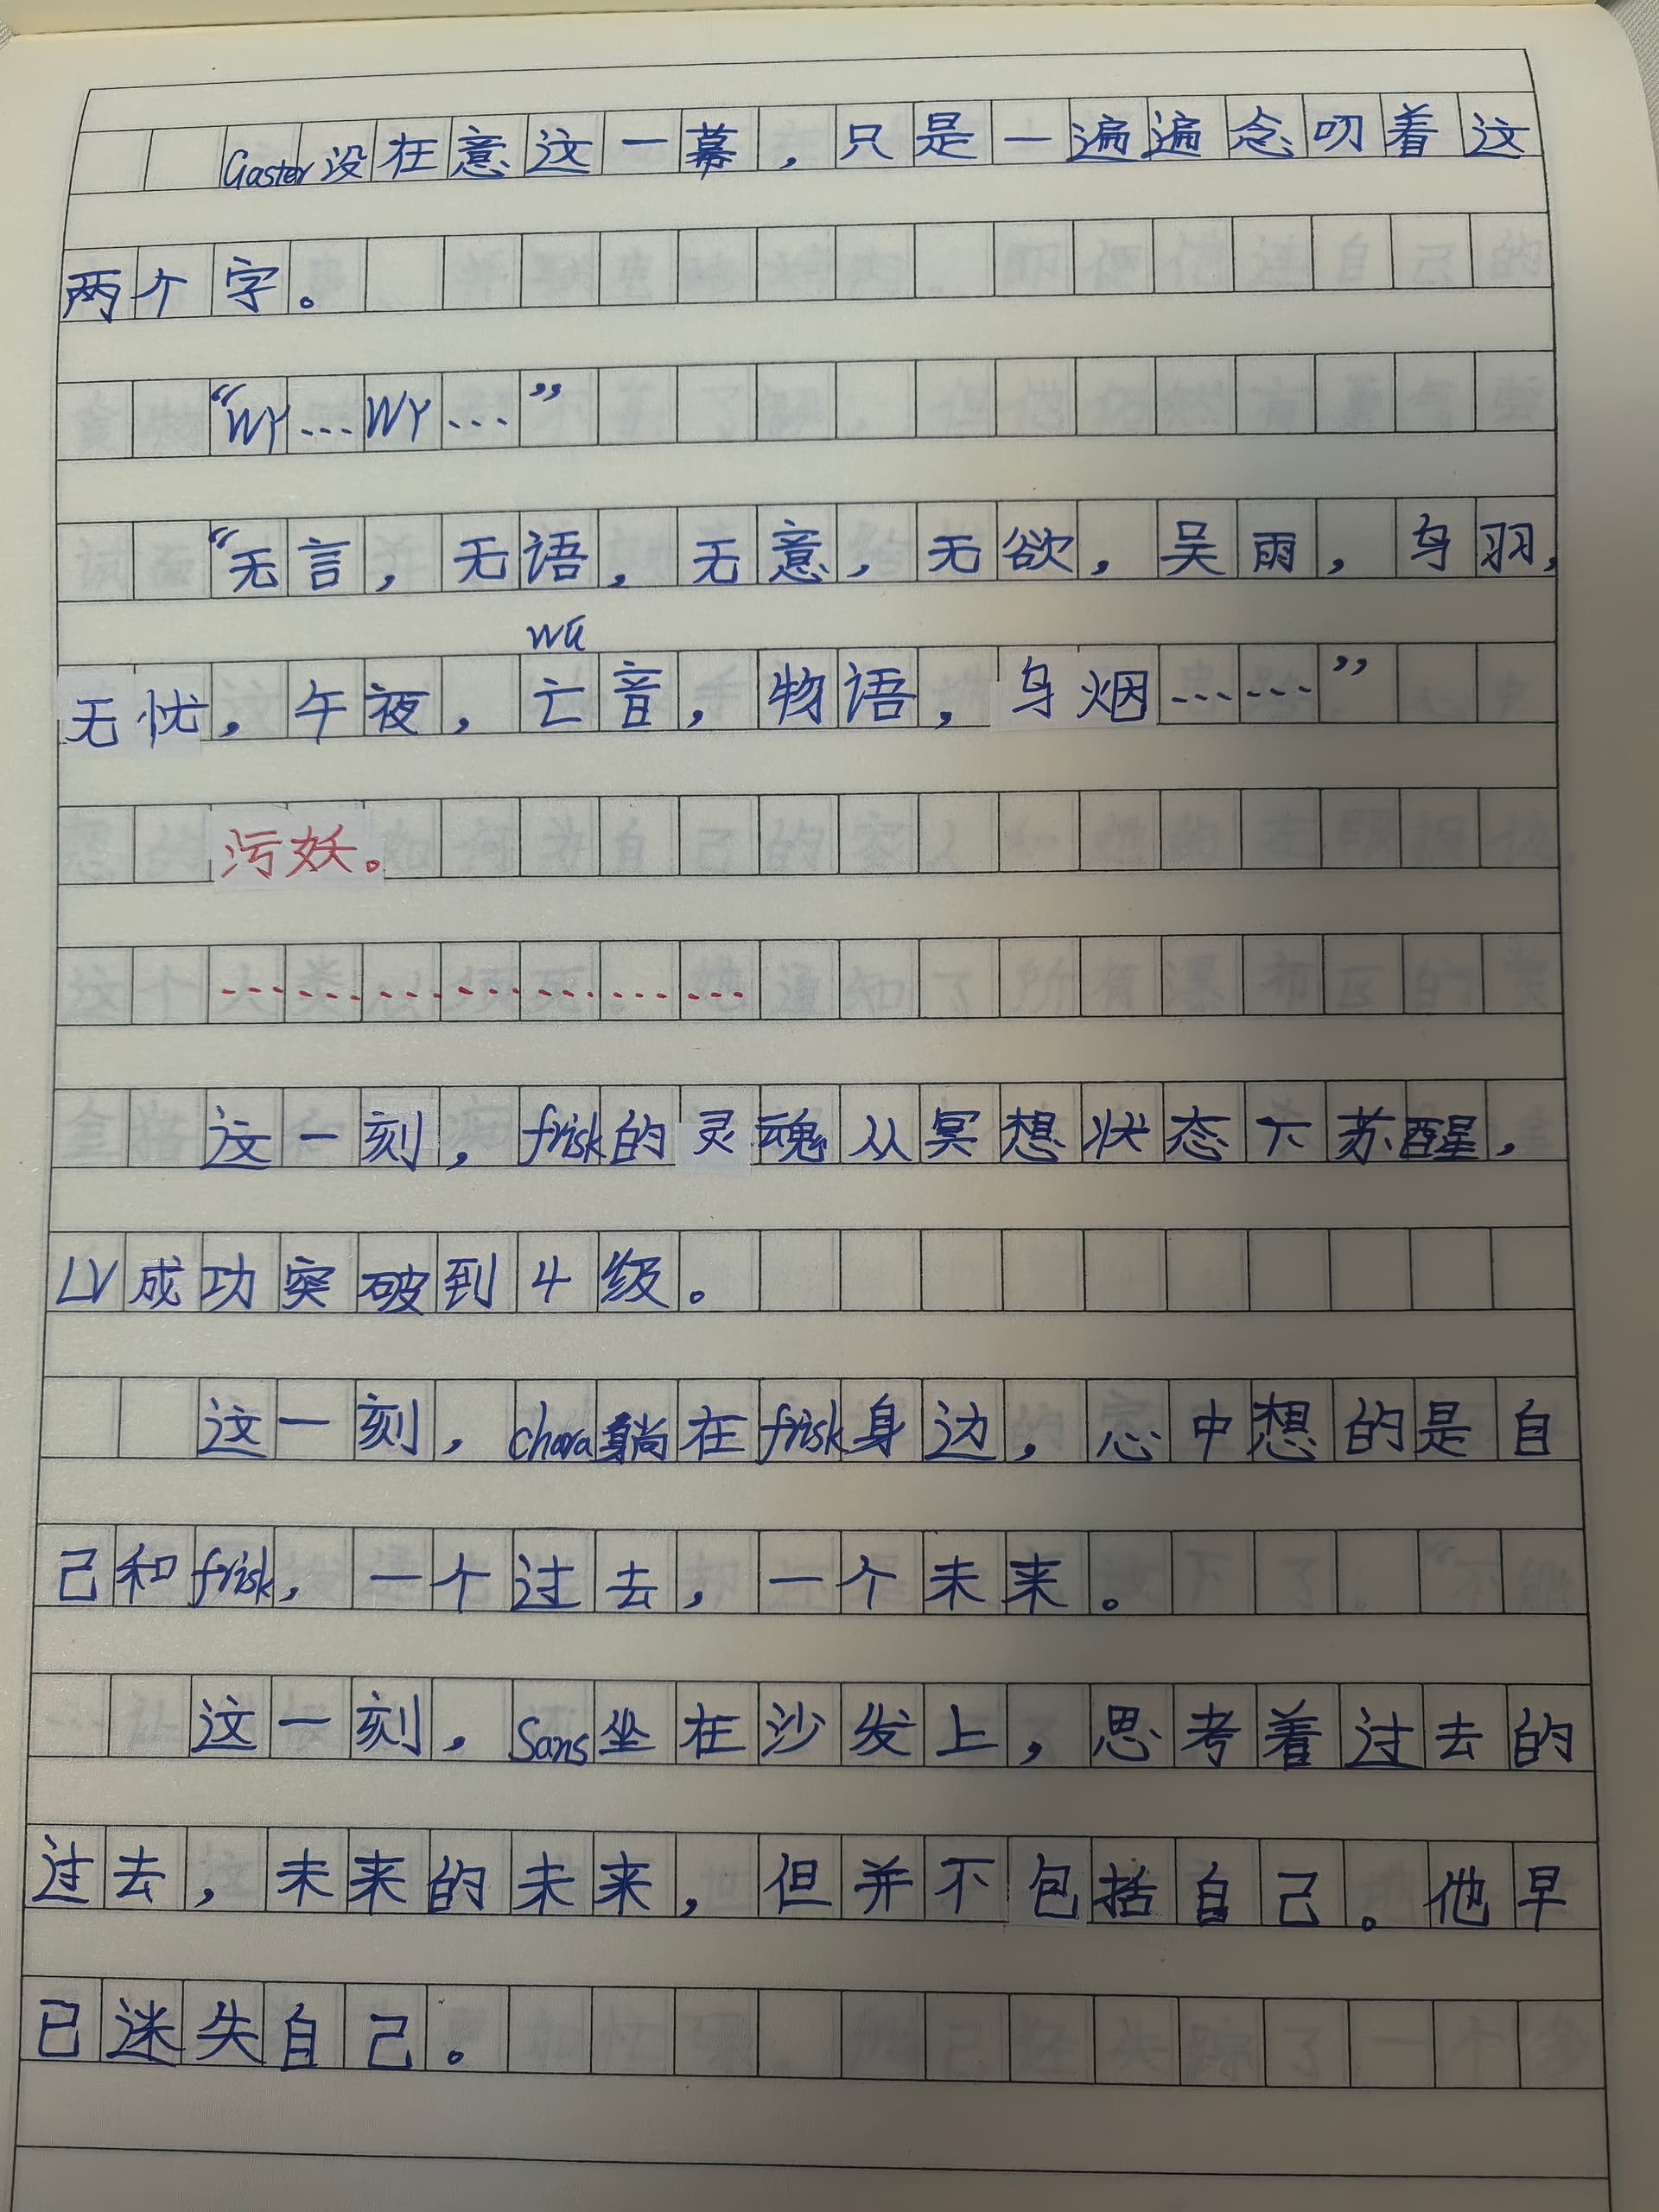 Gaster没在意这一幕，只是一遍遍念叨着这
两个字。
“WY…WY…”
“无言，无语，无意，无欲，吴雨，乌羽，
wú
无忧，午夜，亡音，物语，乌烟……”
污妖。
…………………
这一刻，frisk的灵魂从冥想状态下苏醒，
LV成功突破到4级。
这一刻，chara躺在frisk身边，心中想的是自
己和frisk，一个过去，一个未来。
这一刻，Sans坐在沙发上，思考着过去的
过去，未来的未来，但并不包括自己。他早
已迷失自己。